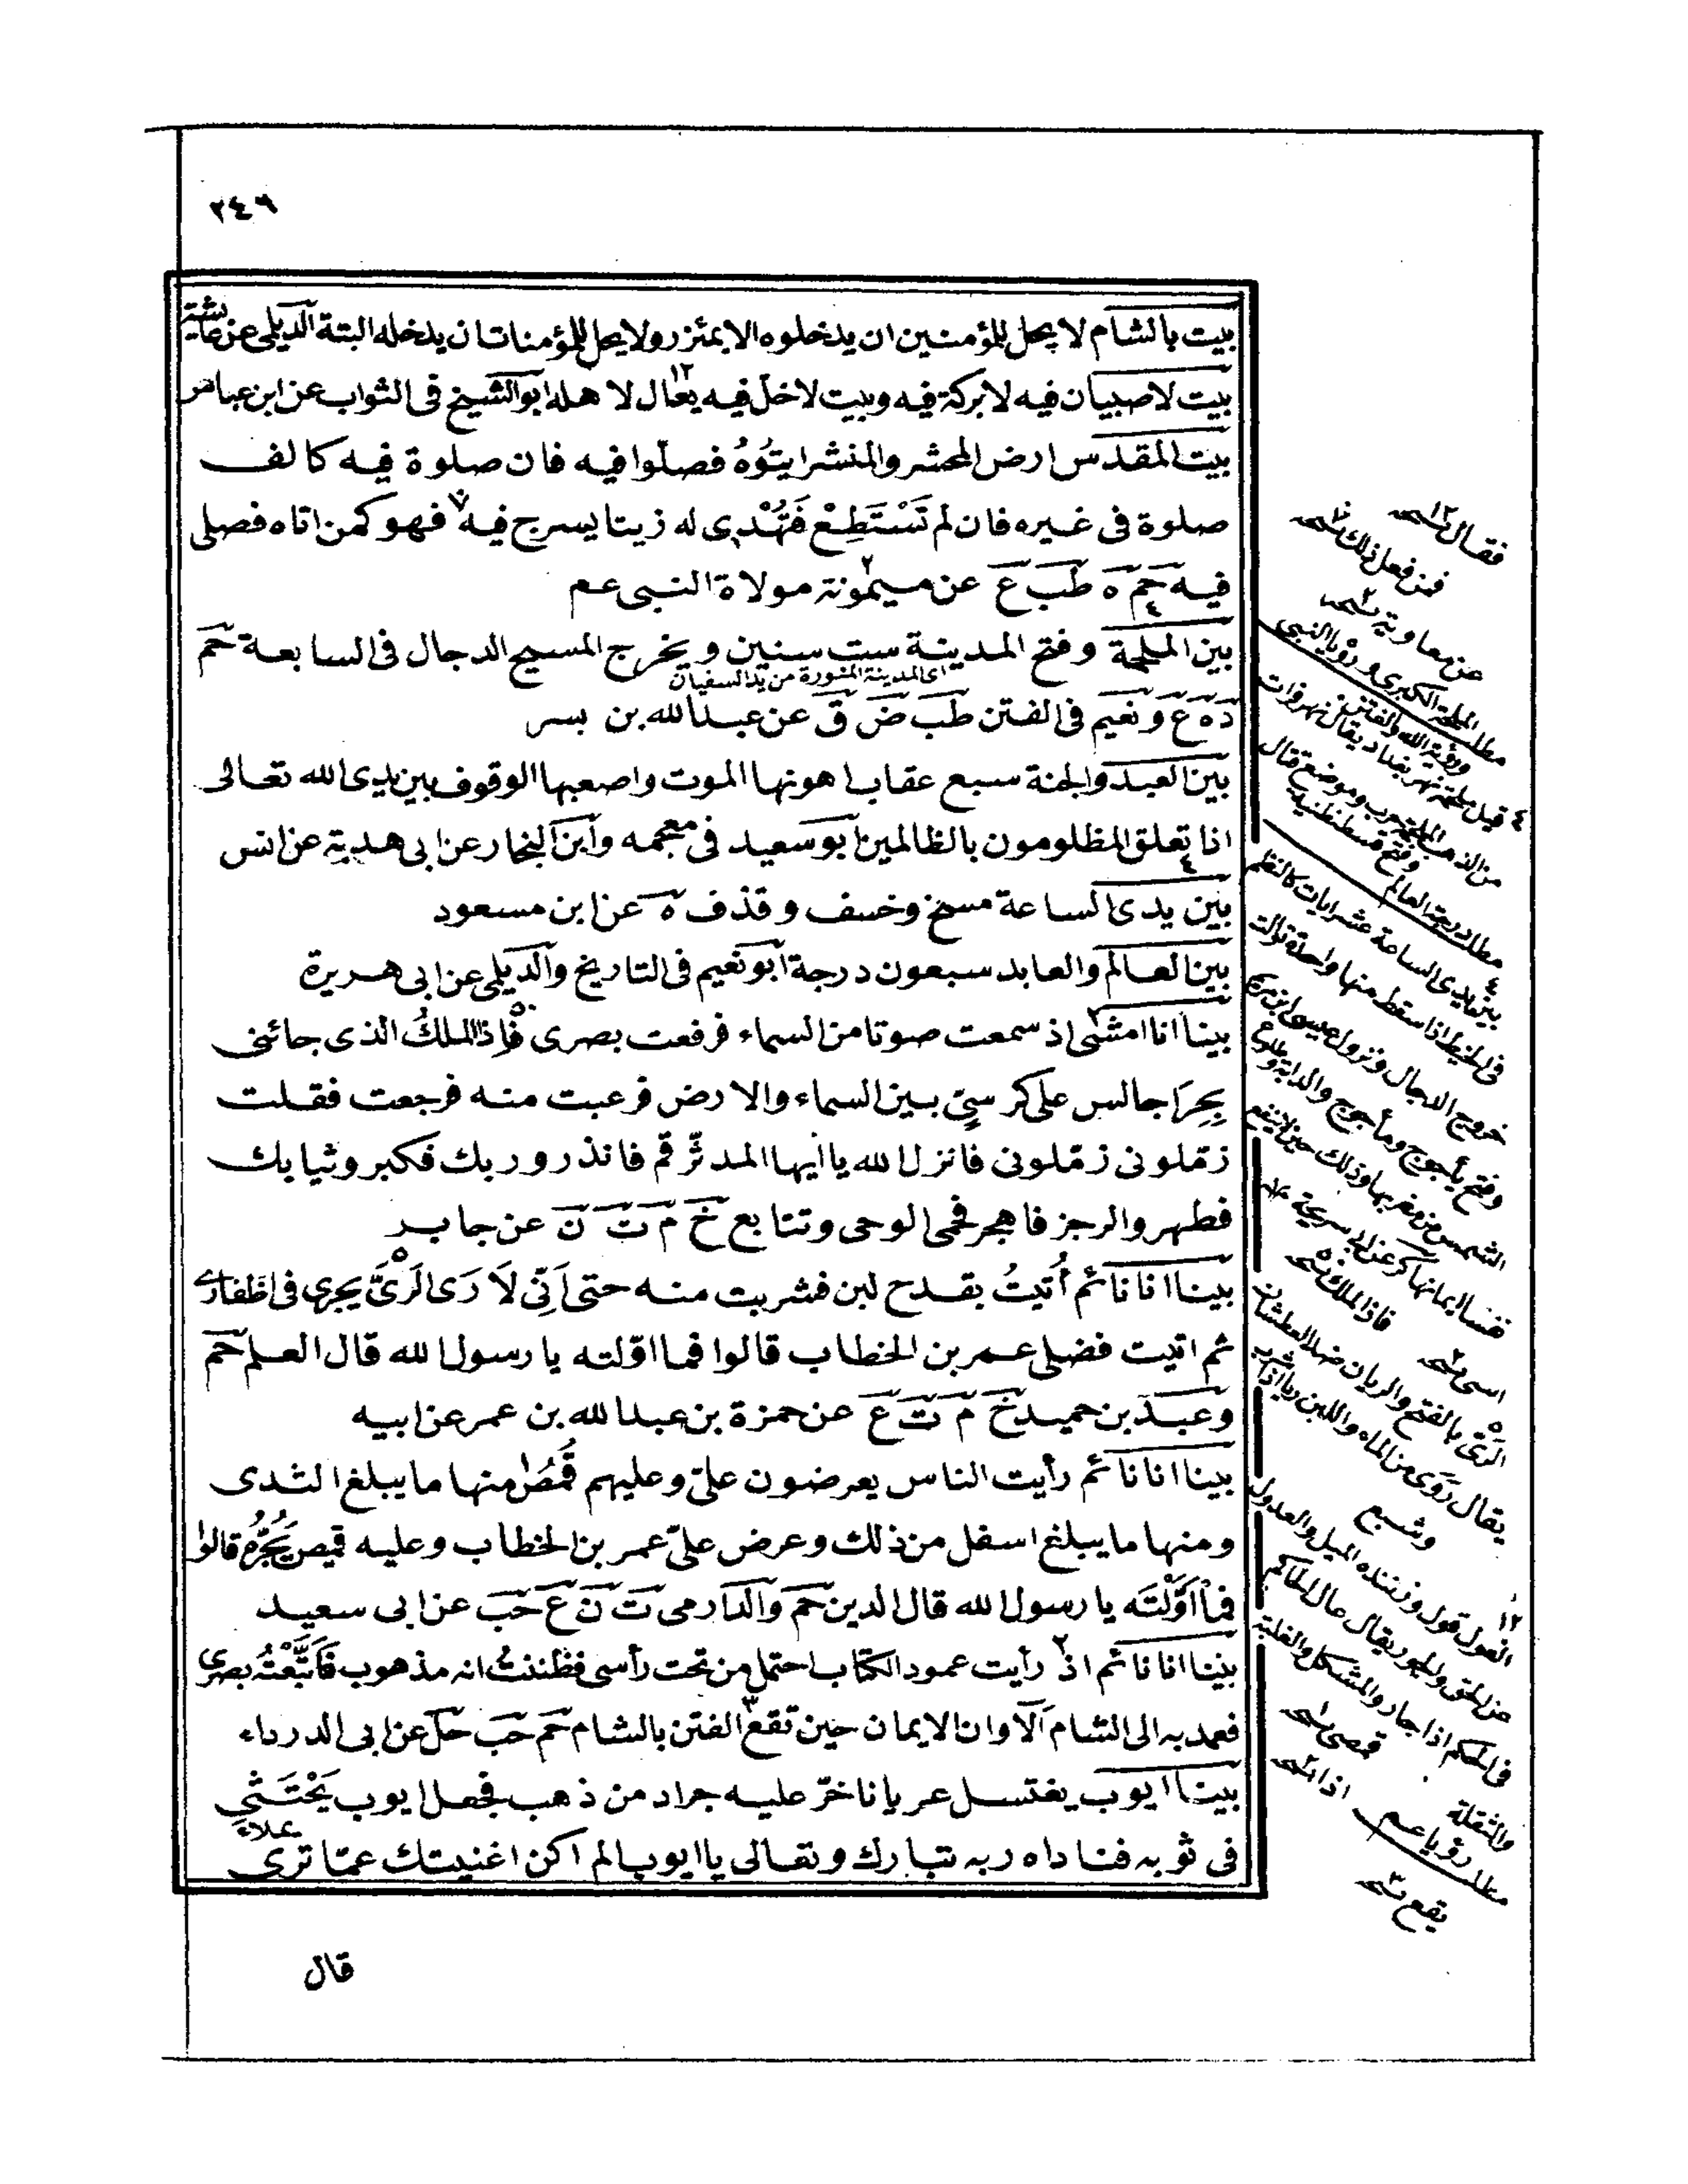 ٢٤٩
بيت بالشام لا يحل للمؤمنين ان يدخلوه الا بمئزر ولا يحل للمؤمنات ان يدخله البتة الديلمى عن عايشة
بيت لا صبيان فيه لا بركة فيه وبيت لا خل فيه يعال لا هله ابو الشيخ فى الثواب عن ابن عباس
بيت المقدس ارض المحشر والمنشر ايتُوُهُ فصلّوا فيه فان صلوة فيه كالف
صلوة فى غيره فان لم تَسْتَطِعْ فَتُهْدِى له زيتا يسرج فيه فهو كمن اتاه فصلى
فيه حم ه طب ع عن ميمونة مولاة النبى عم
بين الملحمة وفتح المدينة ست سنين ويخرج المسيح الدجال فى السابعة حم
اى المدينة المنورة من يد السفيان
د ه ع ونعيم فى الفتن طب ض ق عن عبد الله بن بسر
بين العبد والجنة سبع عقاب اهونها الموت واصعبها الوقوف بين يدى الله تعالى
اذا تعلق المظلومون بالظالمين ابو سعيد فى معجمه وابن النجار عن ابى هدبة عن انس
بين يدى الساعة مسخ وخسف وقذف ه عن ابن مسعود
بين العالم والعابد سبعون درجة ابو نعيم فى التاريخ والديلمى عن ابى هريرة
بينا انا امشى اذ سمعت صوتا من السماء فرفعت بصرى فإذا الملكُ الذى جائنى
بحِرَا جالس على كرسيّ بين السماء والارض فرعبت منه فرجعت فقلت
زمّلونى زمّلونى فانزل الله يا ايها المدثّر قم فانذر وربك فكبر وثيابك
فطهر والرجز فاهجر فحمى الوحى وتتابع خ م ت ن عن جابر
بينا انا نائم أُتيتُ بقدح لبن فشربت منه حتى اَنّى لاَ رَى الرِىَّ يجرى فى اظفارى
ثم اتيت فضلى عمر بن الخطاب قالوا فما اوّلته يا رسول الله قال العلم حم
وعبد بن حميد خ م ت ع عن حمزة بن عبد الله بن عمر عن ابيه
بينا انا نائم رأيت الناس يعرضون علىّ وعليهم قُمُصٌ منها ما يبلغ الثدى
ومنها ما يبلغ اسفل من ذلك وعرض علىّ عمر بن الخطاب وعليه قميص يَجُرُّه قالوا
فما اَوَّلْتَه يا رسول الله قال الدين حم والدارمى ت ن ع حب عن ابى سعيد
بينا انا نائم اذ رأيت عمود الكتاب احتمل من تحت رأسى فظننت انه مذهوب فَاَتْبَعْتُه بصرى
فعمد به الى الشام اَلا وان الايمان حين تقع الفتن بالشام حم حب حل عن ابى الدرداء
بينا ايوب يغتسل عريانا خرّ عليه جراد من ذهب فجعل ايوب يَحْتَثِي
فى ثوبه فناداه ربه تبارك وتعالى يا ايوب الم اكن اغنيتك عمّا ترى
قال
فقال نسخه
فمن فعل ذلك نسخه
عن معاوية نسخه
مطلب الملحمة الكبرى ورؤيا النبى
وفتح قسطنطنية
مطلب درجة العالم
بين يدى الساعة عشر ايات كالنظم
فى الخيط اذا سقط منها واحدة توالت
خروج الدجال ونزول عيسى ابن مريم
وفتح يأجوج ومأجوج والدابة وطلوع
الشمس من مغربها وذلك حين لا ينفع
نفسا ايمانها
فاذا الملك نسخه
الرىّ بالفتح والريان ضد العطشان
يقال روى من الماء واللبن
وشبع
العول قول وزننده الميل والعدول
عن الحق والجور يقال عال الحاكم
فى الحكم اذا جار والمشكل والغلبة
والثقلة
قمصى نسخه
اذا نسخه
مطلب رؤيا عم
يقع نسخه